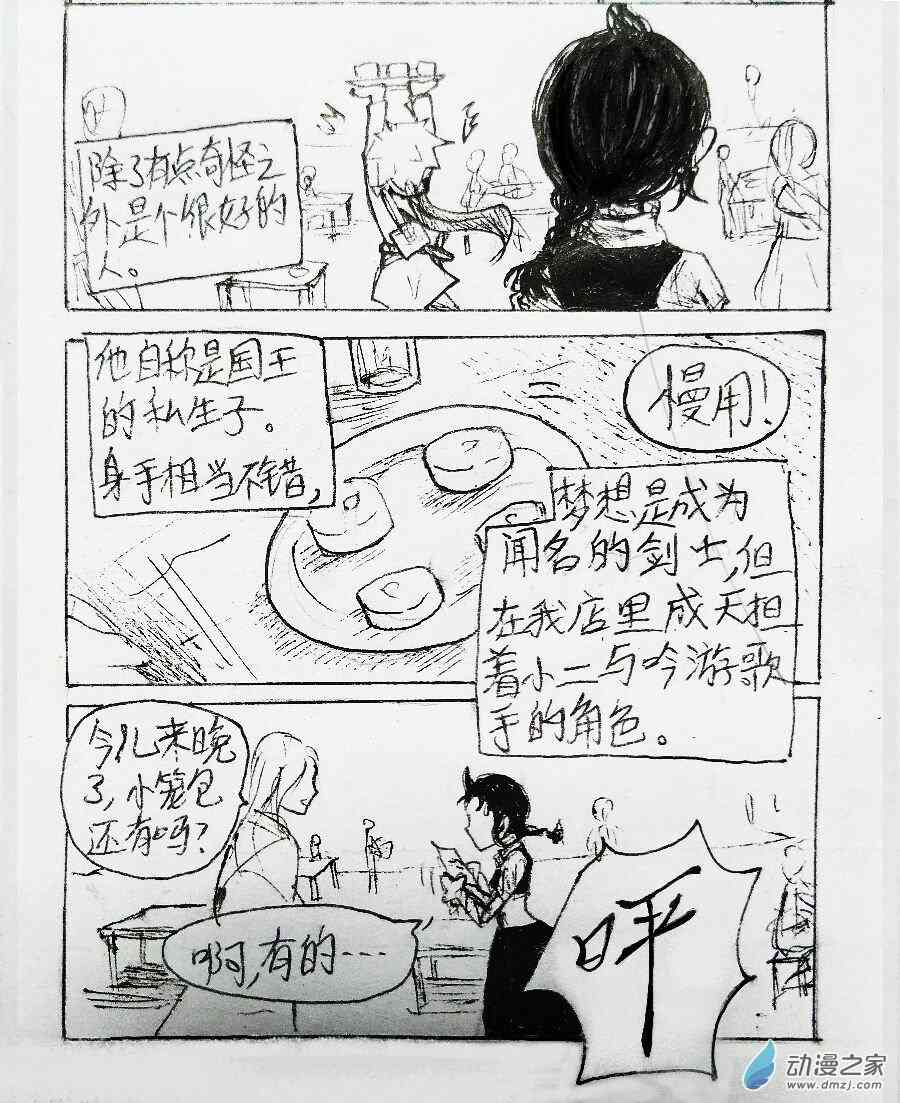 除了有点奇怪之
外是个很好的
人。
他自称是国王
的私生子。
身手相当不错，
慢用！
梦想是成为
闻名的剑士，但
在我店里成天担
着小二与吟游歌
手的角色。
今儿来晚
了，小笼包
还有吗？
啊，有的……
呯
动漫之家
www.dmzj.com